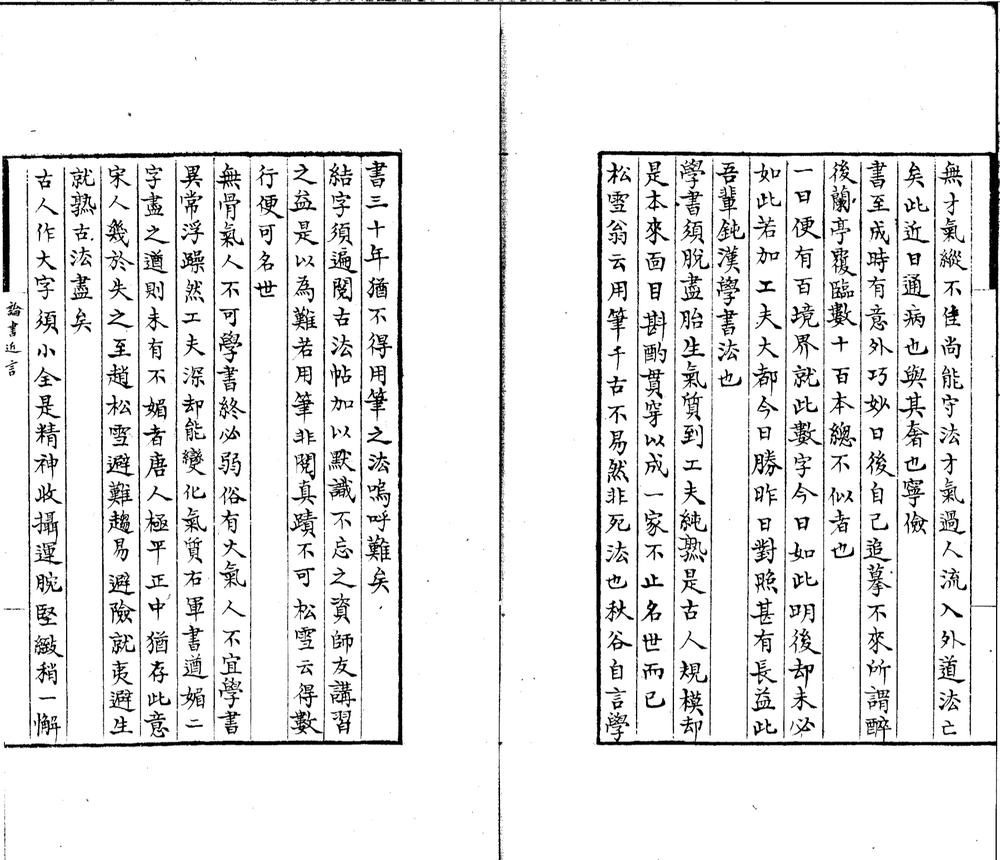 無才氣縱不佳尚能守法才氣過人流入外道法亡
矣此近日通病也與其奢也寧儉
書至成時有意外巧妙日後自己追摹不來所謂醉
後蘭亭覆臨數十百本總不似者也
一日便有百境界就此數字今日如此明後却未必
如此若加工夫大都今日勝昨日對照甚有長益此
吾輩鈍漢學書法也
學書須脫盡胎生氣質到工夫純熟是古人規模却
是本來面目斟酌貫穿以成一家不止名世而已
松雪翁云用筆千古不易然非死法也秋谷自言學
書三十年猶不得用筆之法嗚呼難矣
結字須遍閱古法帖加以默識不忘之資師友講習
之益是以為難若用筆非閱真蹟不可松雪云得數
行便可名世
無骨氣人不可學書終必弱俗有火氣人不宜學書
異常浮躁然工夫深却能變化氣質右軍書遒媚二
字盡之遒則未有不媚者唐人極平正中猶存此意
宋人幾於失之至趙松雪避難趨易避險就夷避生
就熟古法盡矣
古人作大字須小全是精神收攝運腕堅緻稍一懈
論書近言